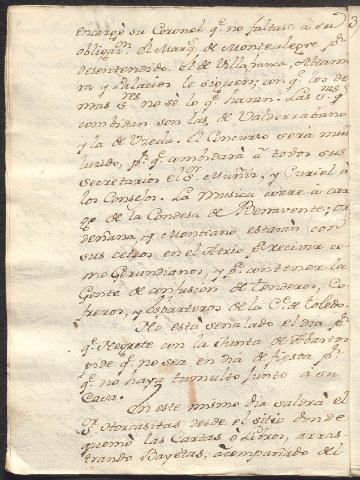 encargò su Coronel q.e no faltase à su
obligac.on el Marq.s de Montealegre p.r
desentendido. el de Villafranca,
y Palacios le siguen; con q.e los de
mas S.res no sè lo q.e haràn. Las S.ras q.e
combidan son las, de Valderrabano
y la de Uzeda. el Concurso serà mui
lucido, p.r q.e combidarà à todos sus
Secretarios el S.r Muñiz, y Curiel à
los Consejos. La Musica corre à car
go de la Condesa de Benavente; or
deñana, y Montiano estaràn con
sus cetros en el Atrio à recivir co
mo Gerundianos, y p.a contener la
Gente de confusion de tenderos, Co
freros, y Esparteros de la C.e de toledo.
No està señalado el dia p.r
q.e Negrete con la Junta de Abastos
pide q.e no sea en dia de fiesta p.r
q.e no haya tumulto junto à su
Casa.
En este mismo dia saldrà el
S.r Horcasitas desde el sitio donde
quemò las Cartas, ò Libros, arras
trando Bayetas, acompañado del